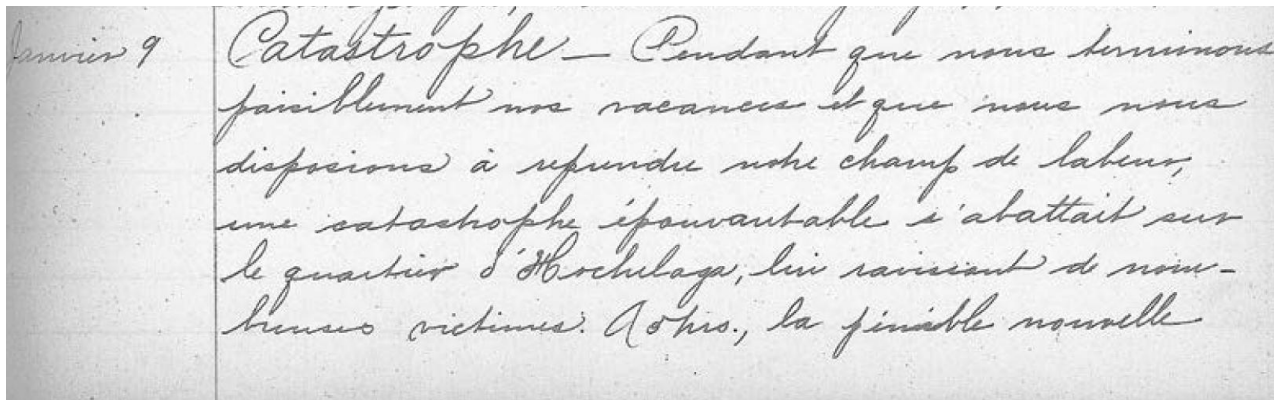 Janvier 9
Catastrophe – Pendant que nous terminions
paisiblement nos vacances et que nous nous
disposions à reprendre notre champ de labeur,
une catastrophe épouvantable s'abattait sur
le quartier d'Hochelaga, lui ravissant de nom-
breuses victimes. A 5 hrs., la pénible nouvelle